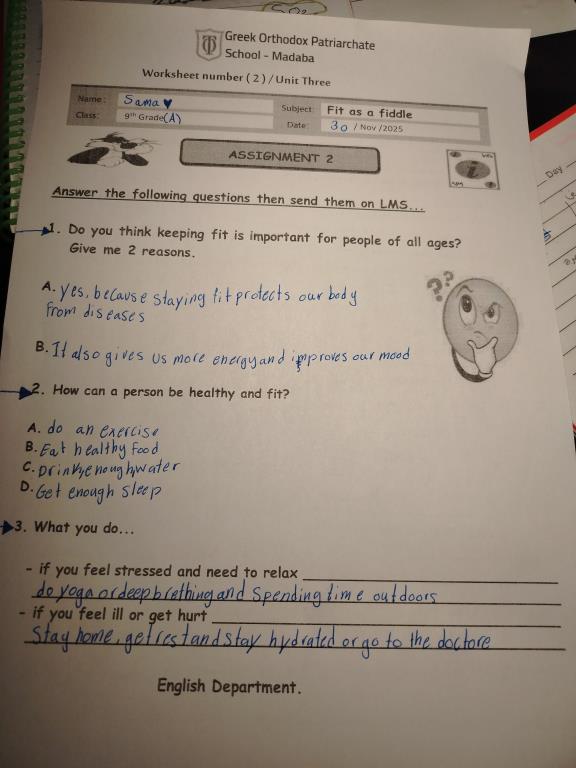 Greek Orthodox Patriarchate
School - Madaba
Worksheet number ( 2 ) / Unit Three
Name: Sama ♥
Subject: Fit as a fiddle
Class: 9th Grade(A)
Date: 30 / Nov /2025
ASSIGNMENT 2
Answer the following questions then send them on LMS...
1. Do you think keeping fit is important for people of all ages?
Give me 2 reasons.
A. yes, because staying fit protects our body
from diseases
B. It also gives us more energy and improves our mood
2. How can a person be healthy and fit?
A. do an exercise
B. Eat healthy food
C. Drink enough water
D. Get enough sleep
3. What you do...
- if you feel stressed and need to relax
do yoga or deep brething and spending time outdoors
- if you feel ill or get hurt
Stay home, get rest and stay hydrated or go to the doctore
English Department.
Day